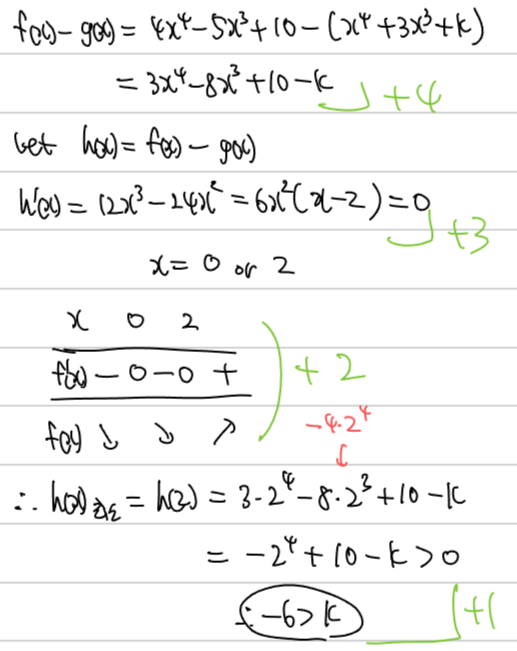 f(x)-g(x) = 4x⁴-5x³+10-(x⁴+3x³+k)
= 3x⁴-8x³+10-k +4
let h(x)=f(x)-g(x)
h'(x)=12x³-24x²=6x²(x-2)=0 +3
x=0 or 2
x 0 2
f'(x) - 0 - 0 + +2
f(x) ↘ ↘ ↗ -4·2⁴
↓
∴ h(x)최소 = h(2) = 3·2⁴-8·2³+10-k
= -2⁴+10-k>0
∴ -6>k +1